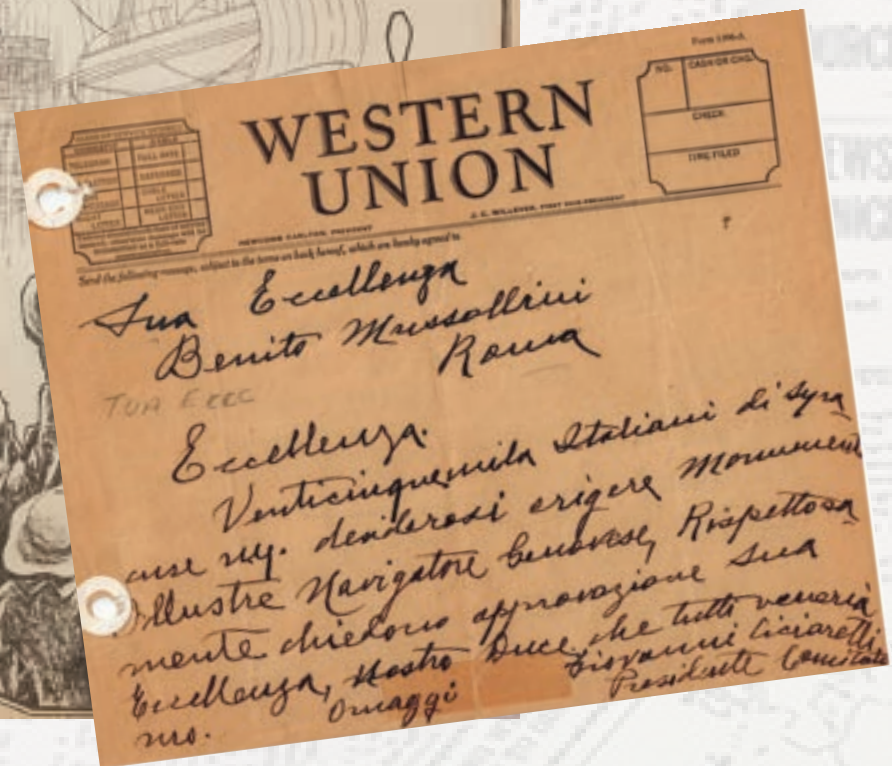 Form 1206-A
WESTERN
UNION
NO.
CASH OR CHG.
CHECK
TIME FILED
NEWCOMB CARLTON, PRESIDENT
J. C. WILLEVER, FIRST VICE-PRESIDENT
Send the following message, subject to the terms on back hereof, which are hereby agreed to
Sua Eccellenza
Benito Mussollini
Roma
TUA ECCE
Eccellenza.
Venticinquemila Italiani di Syra
cuse ny. desiderosi erigere Monument
Illustre Navigatore Genovese, Rispettosa
mente chiedono approvazione Sua
Eccellenza, Nostro Duce, che tutti veneria
mo.
Omaggi
Giovanni Ciciarelli
Presidente Comitato